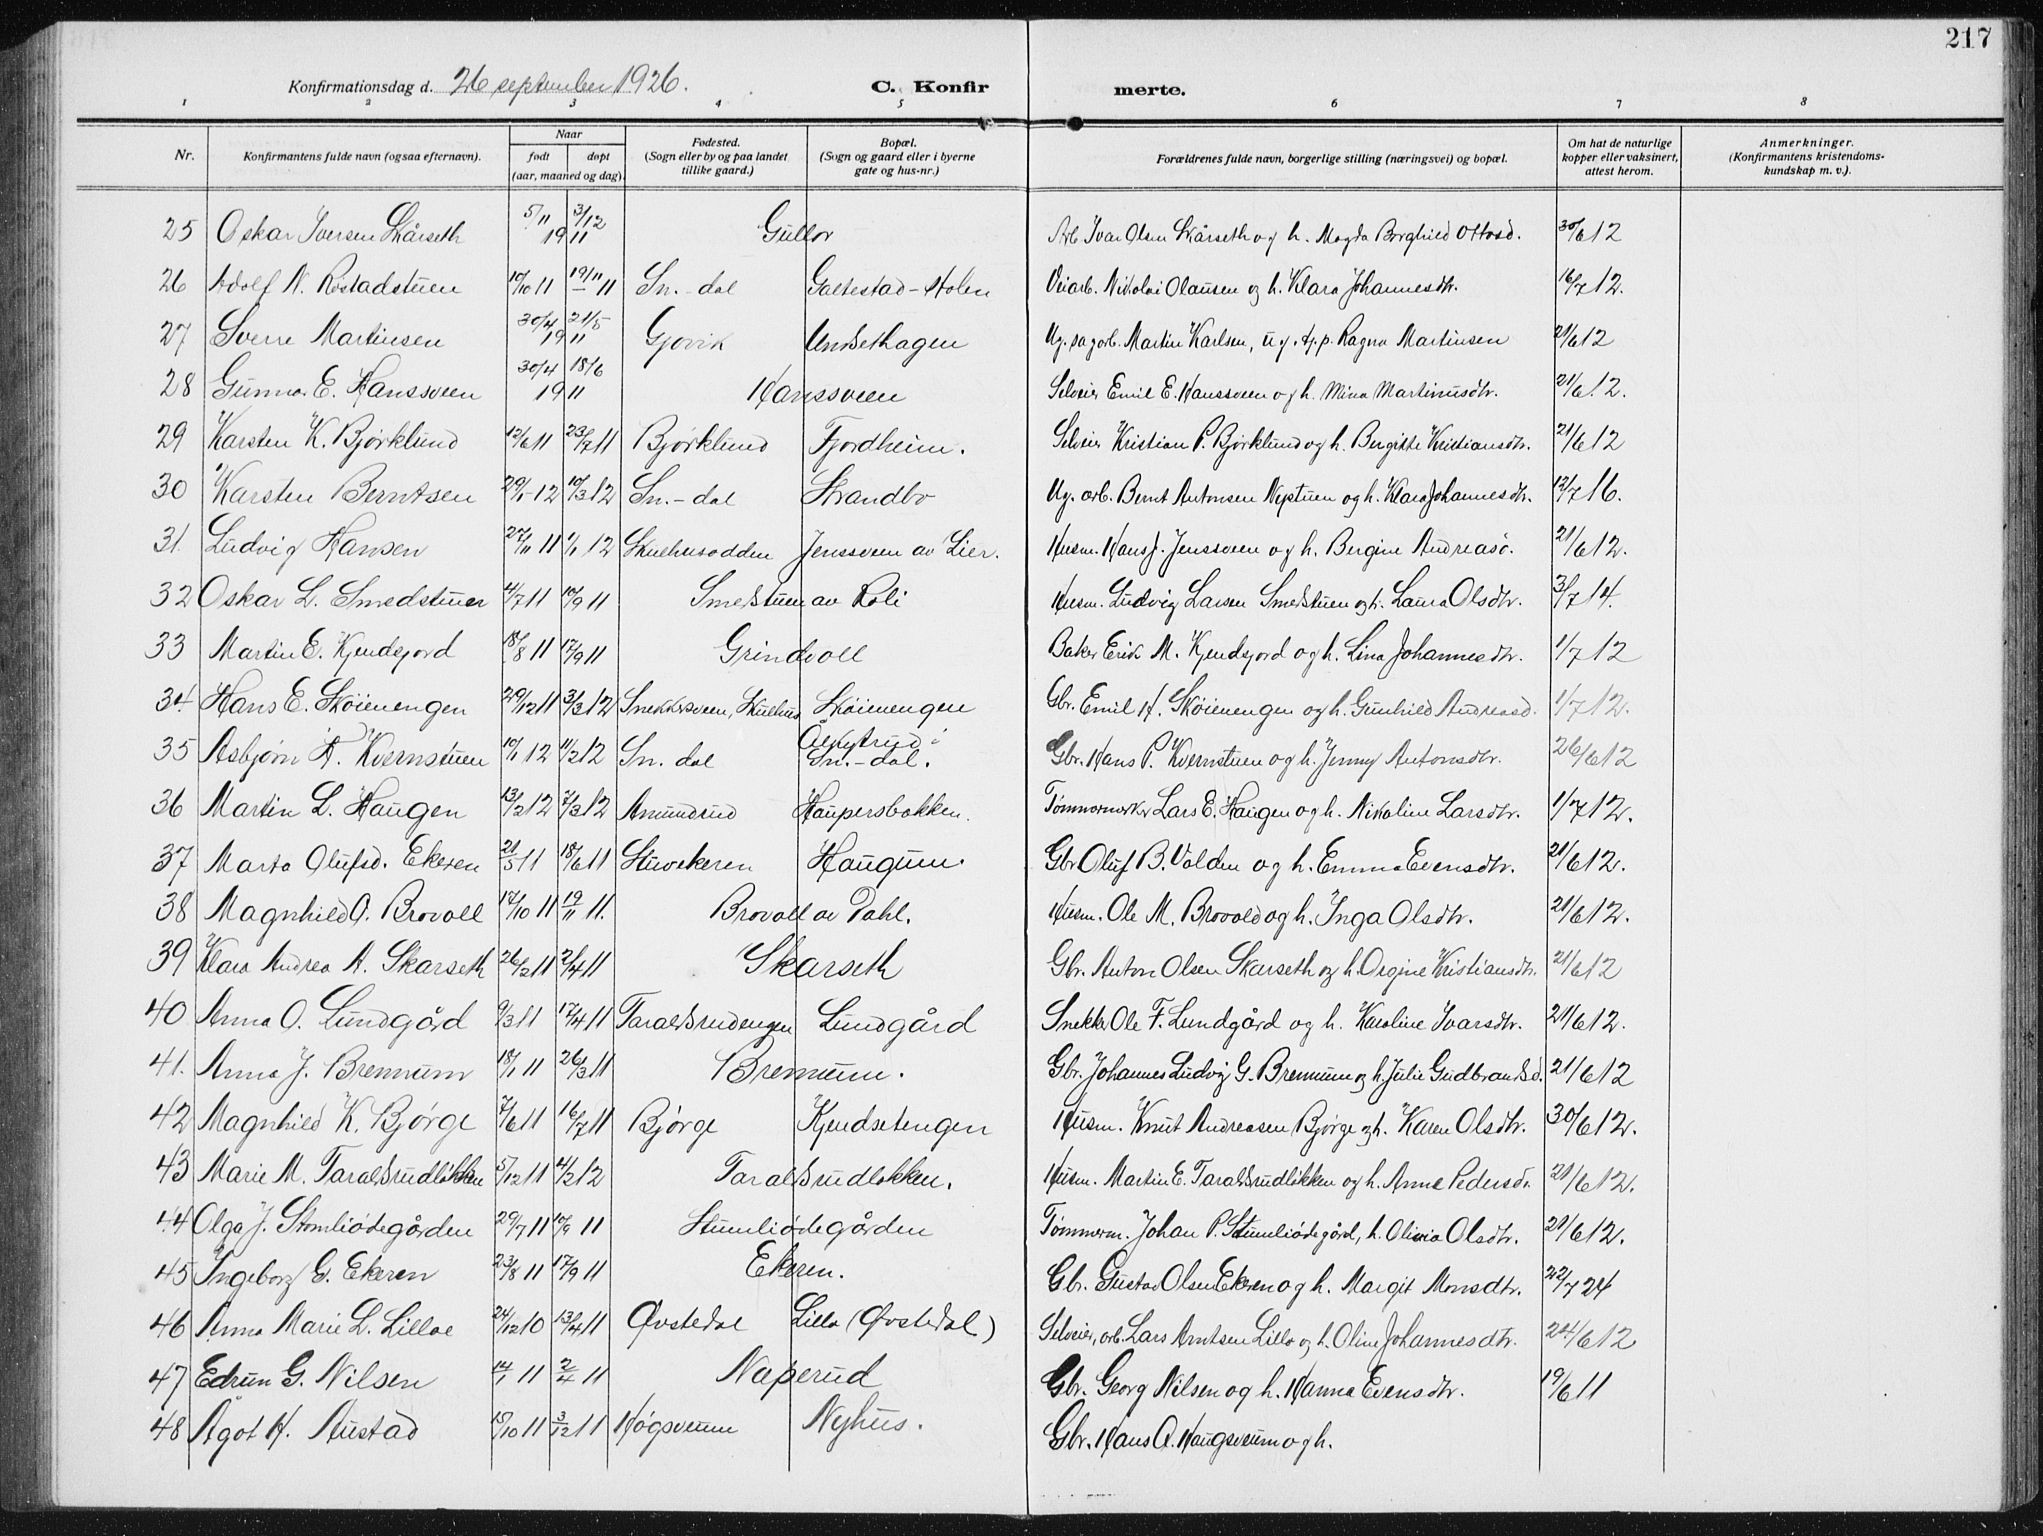 217
Konfirmationsdag d. 26 september 1926. C. Konfir merte.
1 2 3 4 5 6 7 8
Nr. Konfirmantens fulde navn (ogsaa efternavn). Naar født døpt (aar, maaned og dag). Fødested. (Sogn eller by og paa landet tillike gaard.) Bopæl. (Sogn og gaard eller i byerne gate og hus-nr.) Forældrenes fulde navn, borgerlige stilling (næringsvei) og bopæl. Om hat de naturlige kopper eller vaksinert, attest herom. Anmerkninger. (Konfirmantens kristendoms-kundskap m. v.).
25 Oskar Iversen Skårseth 5/11 3/12 1911 Gullor Arb Ivar Olsen Skårseth og h. Magda Borghild Ottosd. 30/6 12
26 Adolf N. Røstadstuen 10/10 11 19/11 11 Sn.-dal Galtestad-Holen Veiarb. Nikolai Olausen og h. Klara Johannesdtr. 16/7 12.
27 Sverre Martinsen 30/4 21/5 1911 Gjøvik Undsethagen Ug. sagarb. Martin Karlsen, ug. Ragna Martinsen 21/6 12
28 Gunnar E. Hanssveen 30/4 18/6 1911 Hanssveen Selveier Emil E. Hanssveen og h. Mina Martinusdtr. 21/6 12.
29 Karsten K. Bjørklund 12/6 11 23/7 11 Bjørklund Fjordheim. Selveier Kristian P. Bjørklund og h. Bergitte Kristiansdtr. 21/6 12
30 Karsten Berntsen 29/1-12 10/3 12 Sn.-dal Strandbo Ug. arb. Bernt Antonsen Nystuen og h. Klara Johannesdtr. 12/7 16.
31. Ludvig Hansen 27/11 11 1/1 12 Skuehusodden Jenssveen av Lier. Husm. Hans J. Jenssveen og h. Bergine Andreasd. 21/6 12.
32 Oskar L. Smedstuen 4/7 11 10/9 11 Smedstuen av Roli Husm. Ludvig Larsen Smedstuen og h. Laura Olsdtr. 3/7 14.
33 Martin E. Kjendsjord 18/8 11 17/9 11 Grindvoll Baker Erik M. Kjendsjord og h. Lina Johannesdtr. 1/7 12
34. Hans E. Skøienengen 29/12 11 3/3 12 Snekkersveen, Skuehus Skøienengen Gbr. Emil H. Skøienengen og h. Gunhild Andreasd. 1/7 12.
35 Asbjørn H. Kvernstuen 10/1 12 11/2 12 Sn. dal i Sn.-dal. Gbr. Hans P. Kvernstuen og h. Jenny Antonsdtr. 26/6 12
36 Martin L. Haugen 13/2 12 7/3 12 Amundrud Haupersbakken. Tømmermerker Lars E. Haugen og h. Nikoline Larsdtr. 1/7 12.
37 Marta Olufsd. Ekeren 21/5 11 18/6 11 Stuvekeren Haugum. Gbr Oluf B. Volden og h. Emma Evensdtr. 21/6 12.
38 Magnhild O. Brovoll 17/10 11 19/11 11. Brovoll av Dahl. Husm. Ole M. Brovold og h. Inga Olsdtr. 21/6 12.
39 Klara Andrea A. Skarseth 26/2 11 2/4 11 Skarseth Gbr. Anton Olsen Skarseth og h. Orgine Kristiansdtr. 21/6 12
40 Anna O. Lundgård 9/3 11 17/4 11 Taraldsrudengen Lundgård Snekker Ole F. Lundgård og h. Karoline Ivarsdtr. 21/6 12.
41. Anna J. Brennum 18/1 11 26/3 11 Brennum. Gbr. Johannes Ludvig G. Brennum og h. Julie Gudbrandsd. 21/6 12
42 Magnhild K. Bjørge 7/6 11 16/7 11 Bjørge Kjendsetengen Husm. Knut Andreasen Bjørge og h. Karen Olsdtr. 30/6 12.
43 Marie M. Taraldsrudløkken 5/12 11 4/2 12 Taraldsrudløkken. Husm. Martin E. Taraldsrudløkken og h. Anne Pedersd. 21/6 12.
44 Olga J. Stomliødegården 29/7 11 10/9 11 Stumliødegården Tømmerm. Johan P. Stumliødegård, h. Olivia Olsdtr. 21/6 12.
45 Ingeborg G. Ekeren 23/8 11 17/9 11 Ekeren. Gbr. Gustav Olsen Ekeren og h. Margit Monsdtr. 22/7 24
46 Anna Marie L. Lilloe 24/12 10 13/4 11 Øvstedal Lillo (Øvstedal) Selveier, arb. Lars Arntsen Lillo og h. Oline Johannesdtr. 24/6 12
47 Edrun G. Nilsen 14/1 11 2/4 11 Naperud Gbr. Georg Nilsen og h. Hanna Evensdtr. 19/6 11
48 Ågot H. Austad 15/10 11 3/12 11 Høgsveum Nyhus. Gbr. Hans A. Haugsveum og h.